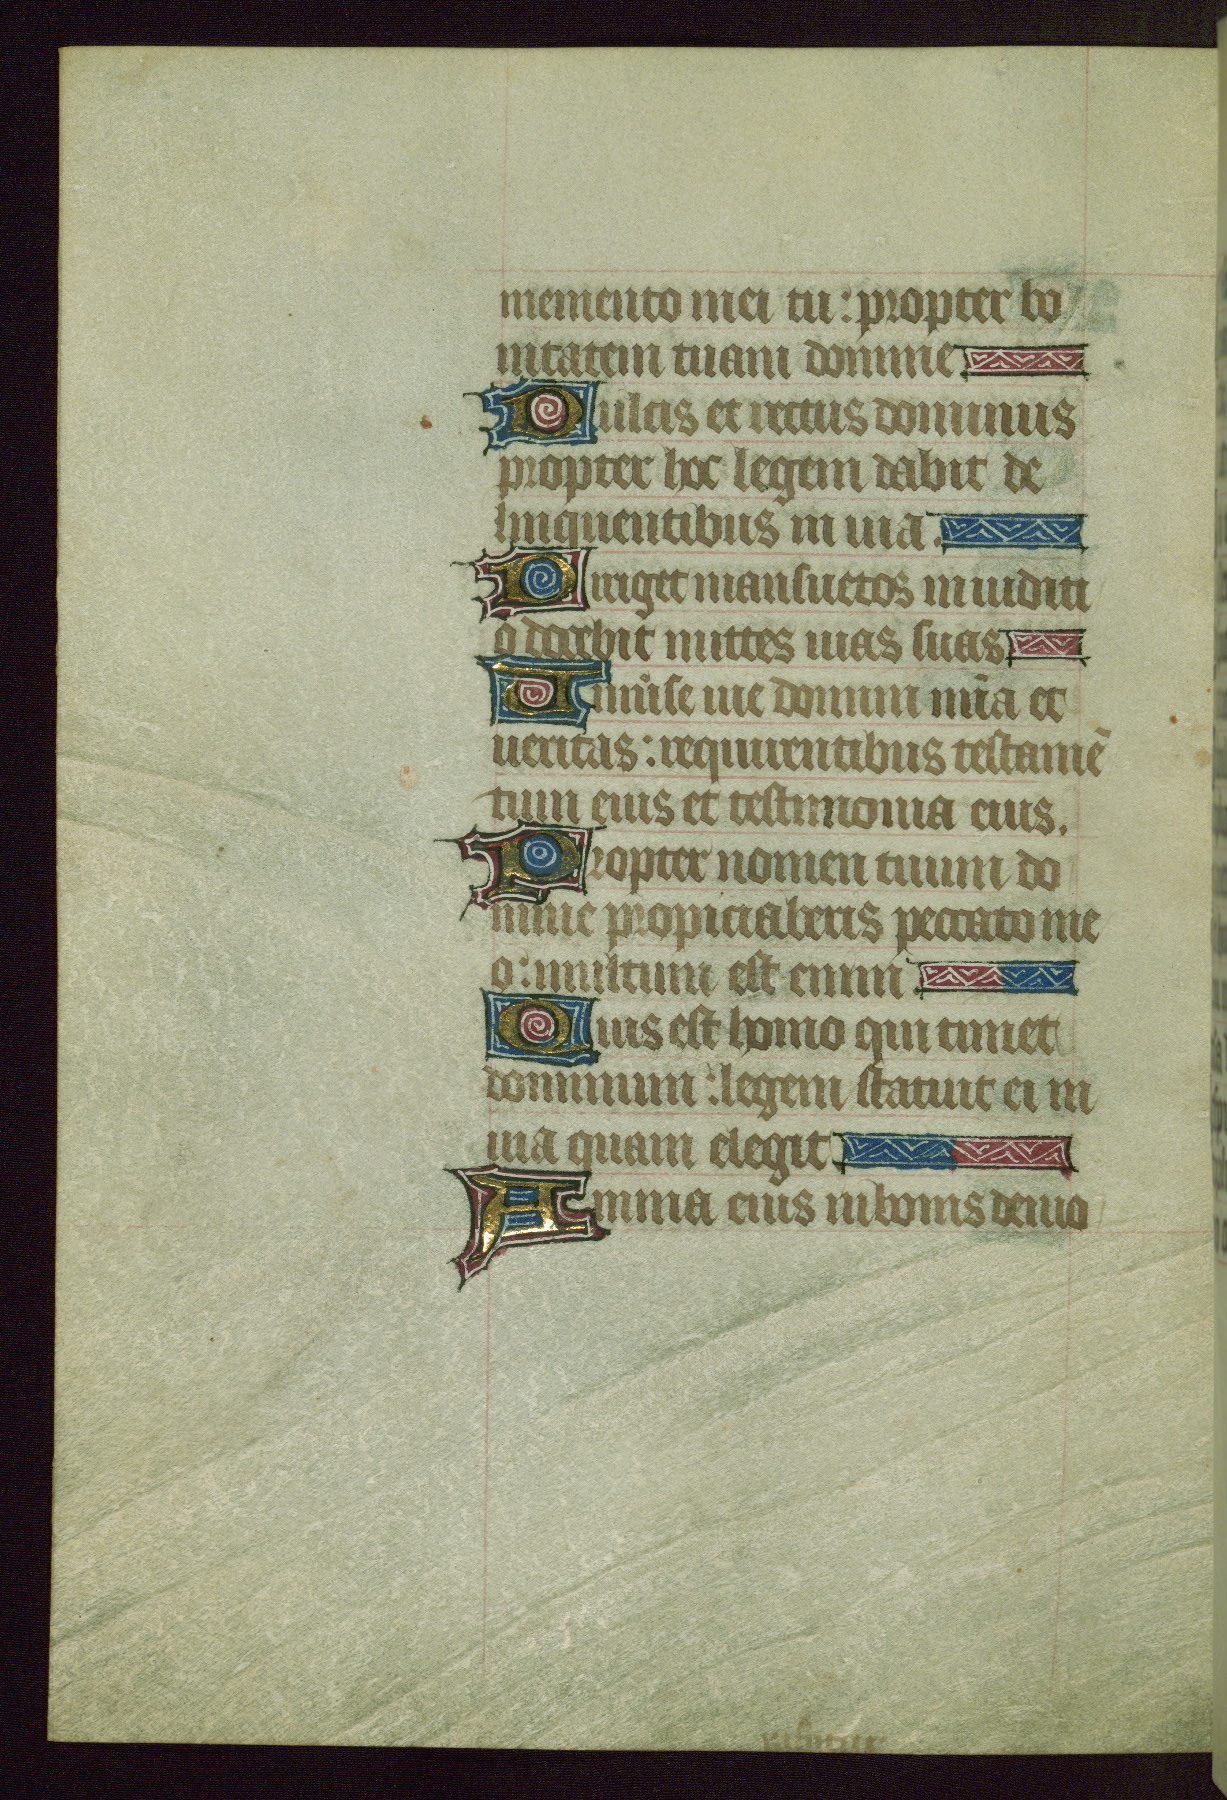 memento mei tu : propter bo
nitatem tuam domine
Dulcis et rectus dominus
propter hoc legem dabit de
linquentibus in uia .
Diriget mansuetos in iuditi
o docebit mittes uias suas
Uniu͛se uie domini mi͠a et
ueritas : requirentibus testame͠
tum eius et testimonia eius .
Propter nomen tuum do
mine propiciaberis peccato me
o : multum est enim .
Quis est homo qui timet
dominum : legem statuit ei in
uia quam elegit
Anima eius in bonis demo